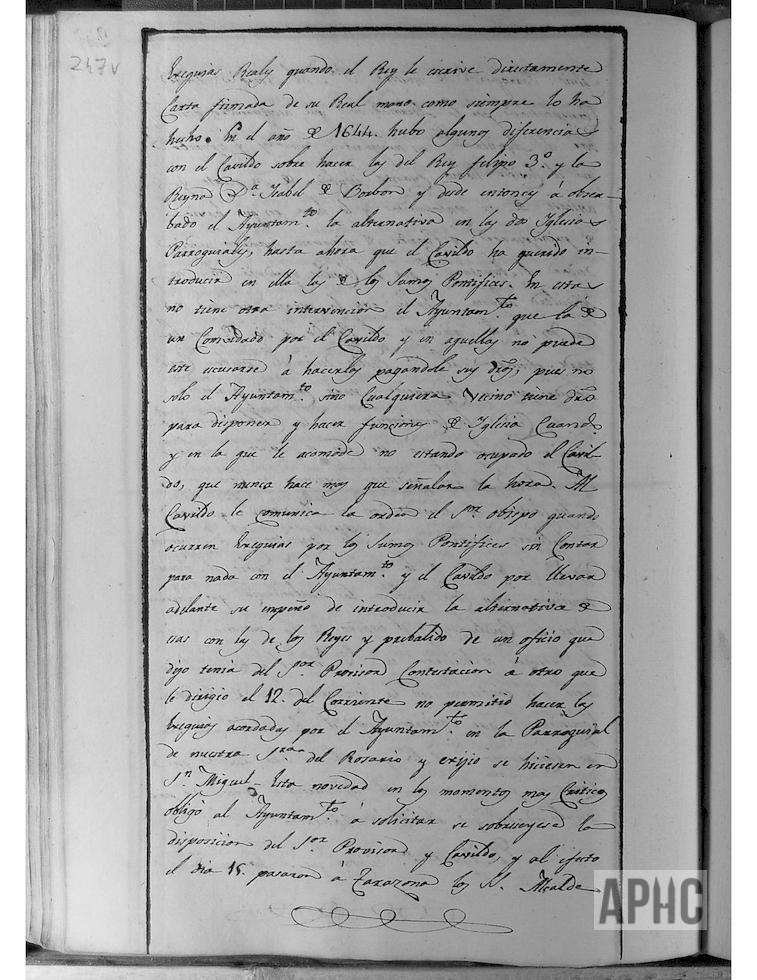 247v
Exequias Reales quando el Rey le escrive directamente
Carta firmada de su Real mano como siempre lo ha
hecho. En el año de 1644. hubo algunas diferencias
con el Cavildo sobre hacer las del Rey felipo 3.º y la
Reyna D.ª Isabel de Borbon y desde entonces á obser-
bado el Ayuntam.to la alternativa en las dos Iglesias
Parroquiales, hasta ahora que el Cavildo ha querido in-
troducir en ella las de los Sumos Pontifices. En estas
no tiene otra intervencion el Ayuntam.to que la de
ser Combidado por el Cavildo y en aquellas no puede
este escusarse á hacerlas pagandole sus dros, pues no
solo el Ayuntam.to sino Cualquiera Vecino tiene dro
para disponer y hacer funciones de Iglesia Cuando
y en la que le acomode no estando ocupado el Cavil-
do, que nunca hace mas que señalar la hora. Al
Cavildo le comunica la orden el S.or obispo quando
ocurren Exequias por los Sumos Pontifices sin Contar
para nada con el Ayuntam.to y el Cavildo por llevar
adelante su empeño de introducir la alternativa de
esas con las de los Reyes y prebalido de un oficio que
dijo tenia del S.or Provisor Contestacion á otro que
le dirigio el 12. del Corriente no permitió hacer las
Exequias acordadas por el Ayuntam.to en la Parroquial
de nuestra S.ra del Rosario y exijio se hiciesen en
S.n Miguel. Esta novedad en los momentos mas Criticos
obligó al Ayuntam.to á solicitar se sobreseyese la
disposicion del S.or Provisor y Cavildo, y al efecto
el dia 15. pasaron á Tarazona los SS. Alcalde
APHC